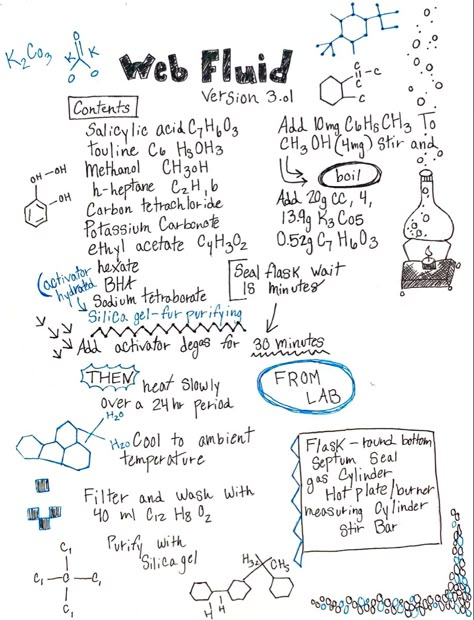 K2CO3
K K
O O
Web Fluid
Version 3.01
Contents
Salicylic acid C7H6O3
touline C6 H5OH3
Methanol CH3OH
n-heptane C2H,6
Carbon tetrachloride
Potassium Carbonate
ethyl acetate C4H3O2
hexate
BHA
Sodium tetraborate
(activator
hydrated
Silica gel-fur purifying
OH
OH
Add 10mg C6H5CH3 To
CH3OH (4mg) stir and
boil
Add 20g CC, 4,
13.9g K3CO5
0.52g C7H6O3
Seal flask wait
18 minutes
Add activator degas for 30 minutes
THEN heat slowly
over a 24 hr period
FROM
LAB
H2O
H2O
Cool to ambient
temperature
Filter and Wash with
40 ml C12 H8 O2
Purify with
Silica gel
Flask - round bottom
Septum Seal
gas Cylinder
Hot plate/burner
measuring Cylinder
Stir Bar
C1
C1 C C1
C1
H3C CH3
H H